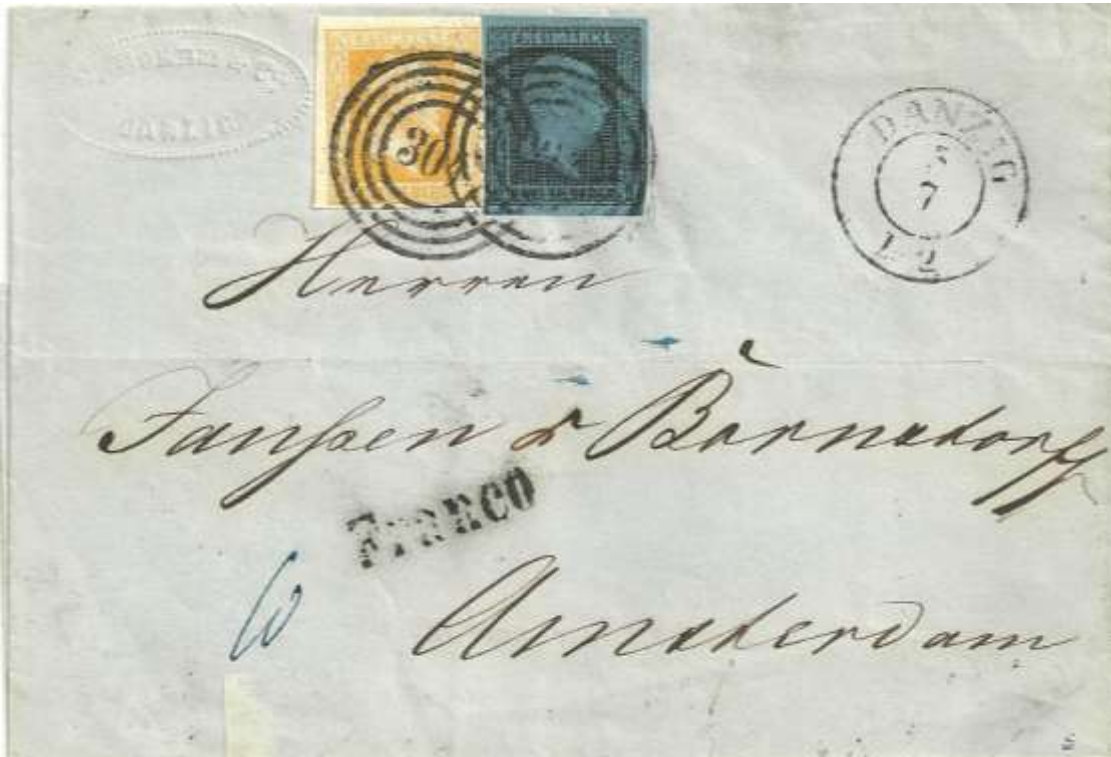 FREIMARKE
FREIMARKE
30
DANZIG
7
1-2
Herren
Janßen & Börnsdorff
Franco
6
Amsterdam